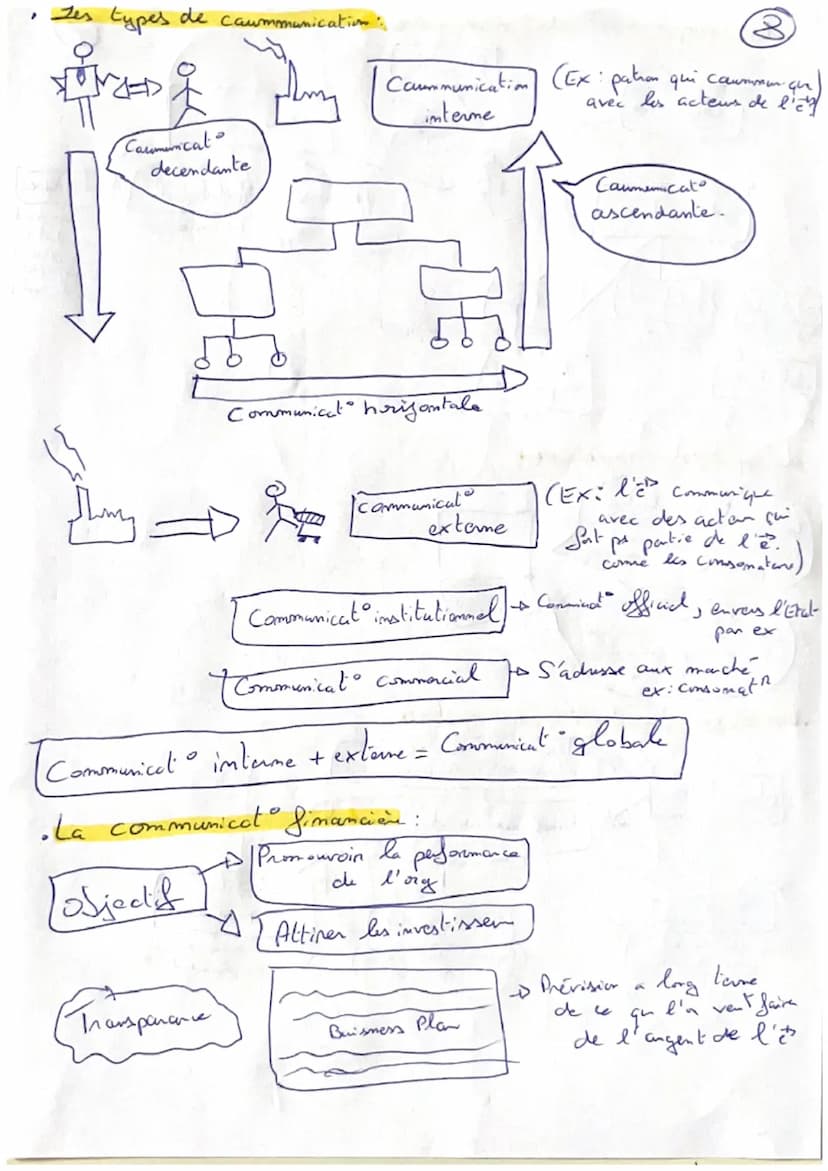 • Les types de caummunication :
8
Caummunication
interne
(Ex : patron qui caummunique
avec les acteurs de l'è^se)
Caumunicat°
decendante
Caumunicat°
ascendante.
Communicat° horizontale
Communicat°
externe
(Ex : l'è^se communique
avec des acteur qui
fat ps partie de l'è^se.
come les consomateurs)
Communicat° institutionnel
→ Communicat° officiel, envers l'Etat
par ex
Communicat° commercial
→ S'adresse aux marché
ex : consomat^n
Communicat° interne + externe = Communicat° globale
• La communicat° financière :
objectif
Promouvoir la performance
de l'org
Attirer les investisseur
Transparance
Buisness Plan
→ Prévision a long terme
de ce qu l'n veut faire
de l'argent de l'è^se